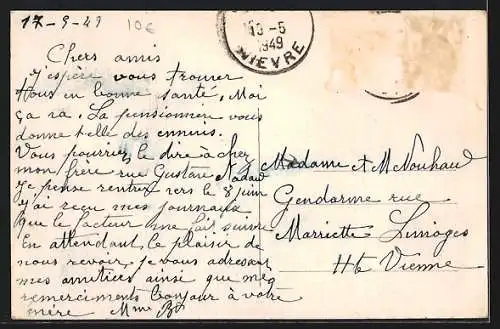 17-5-49
10€
13-5
1949
NIEVRE
Chers amis
J'espère vous trouver
tous en bonne santé, Moi
ça va. La pensionnaire vous
donne t-elle des ennuis.
Vous pourriez le dire à chez
mon frère rue Gustave Nadaud
Je pense rentrer vers le 8 juin
j'ai reçu mes journaux
que le facteur me fait suivre
En attendant le plaisir de
nous revoir, je vous adresse
mes amitiées ainsi que mes
remerciments bonjour à votre
mère Mme
Madame et Mr Nouhaud
Gendarme rue
Mariette Limoges
Hte Vienne